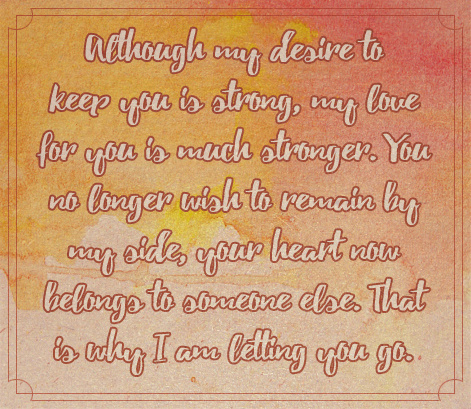 Although my desire to
keep you is strong, my love
for you is much stronger. You
no longer wish to remain by
my side, your heart now
belongs to someone else. That
is why I am letting you go.